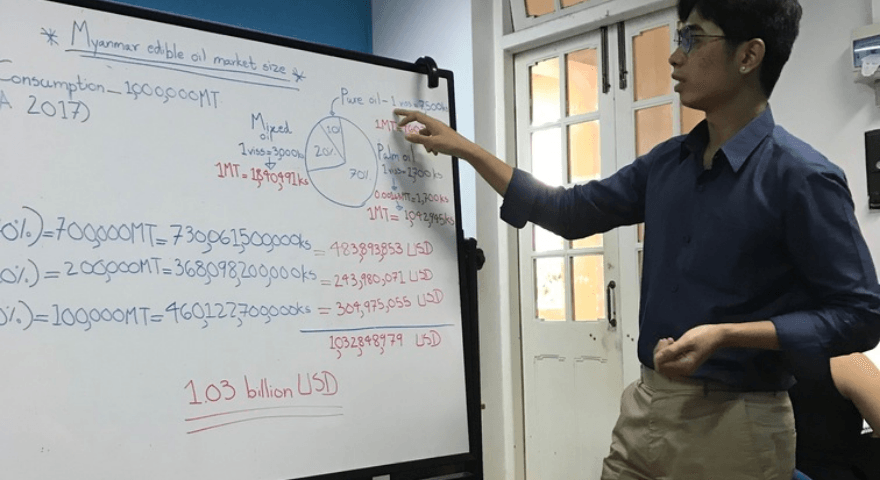 * Myanmar edible oil market size *
Consumption - 1,000,000MT
A 2017)
Pure oil - 1 viss = 7,500ks
1MT =
Mixed
oil
1 viss = 3,000ks
1MT = 1,840,491 ks
10
20%
70%
Palm oil
1 viss = 1,700 ks
MT = 1,700 ks
1MT = 1,042,945 ks
0%) = 700,000MT = 730,061,500,000ks = 483,893,853 USD
0%) = 200,000MT = 368,098,200,000ks = 243,980,071 USD
0%) = 100,000MT = 460,122,700,000ks = 304,975,055 USD
1,032,848,979 USD
1.03 billion USD